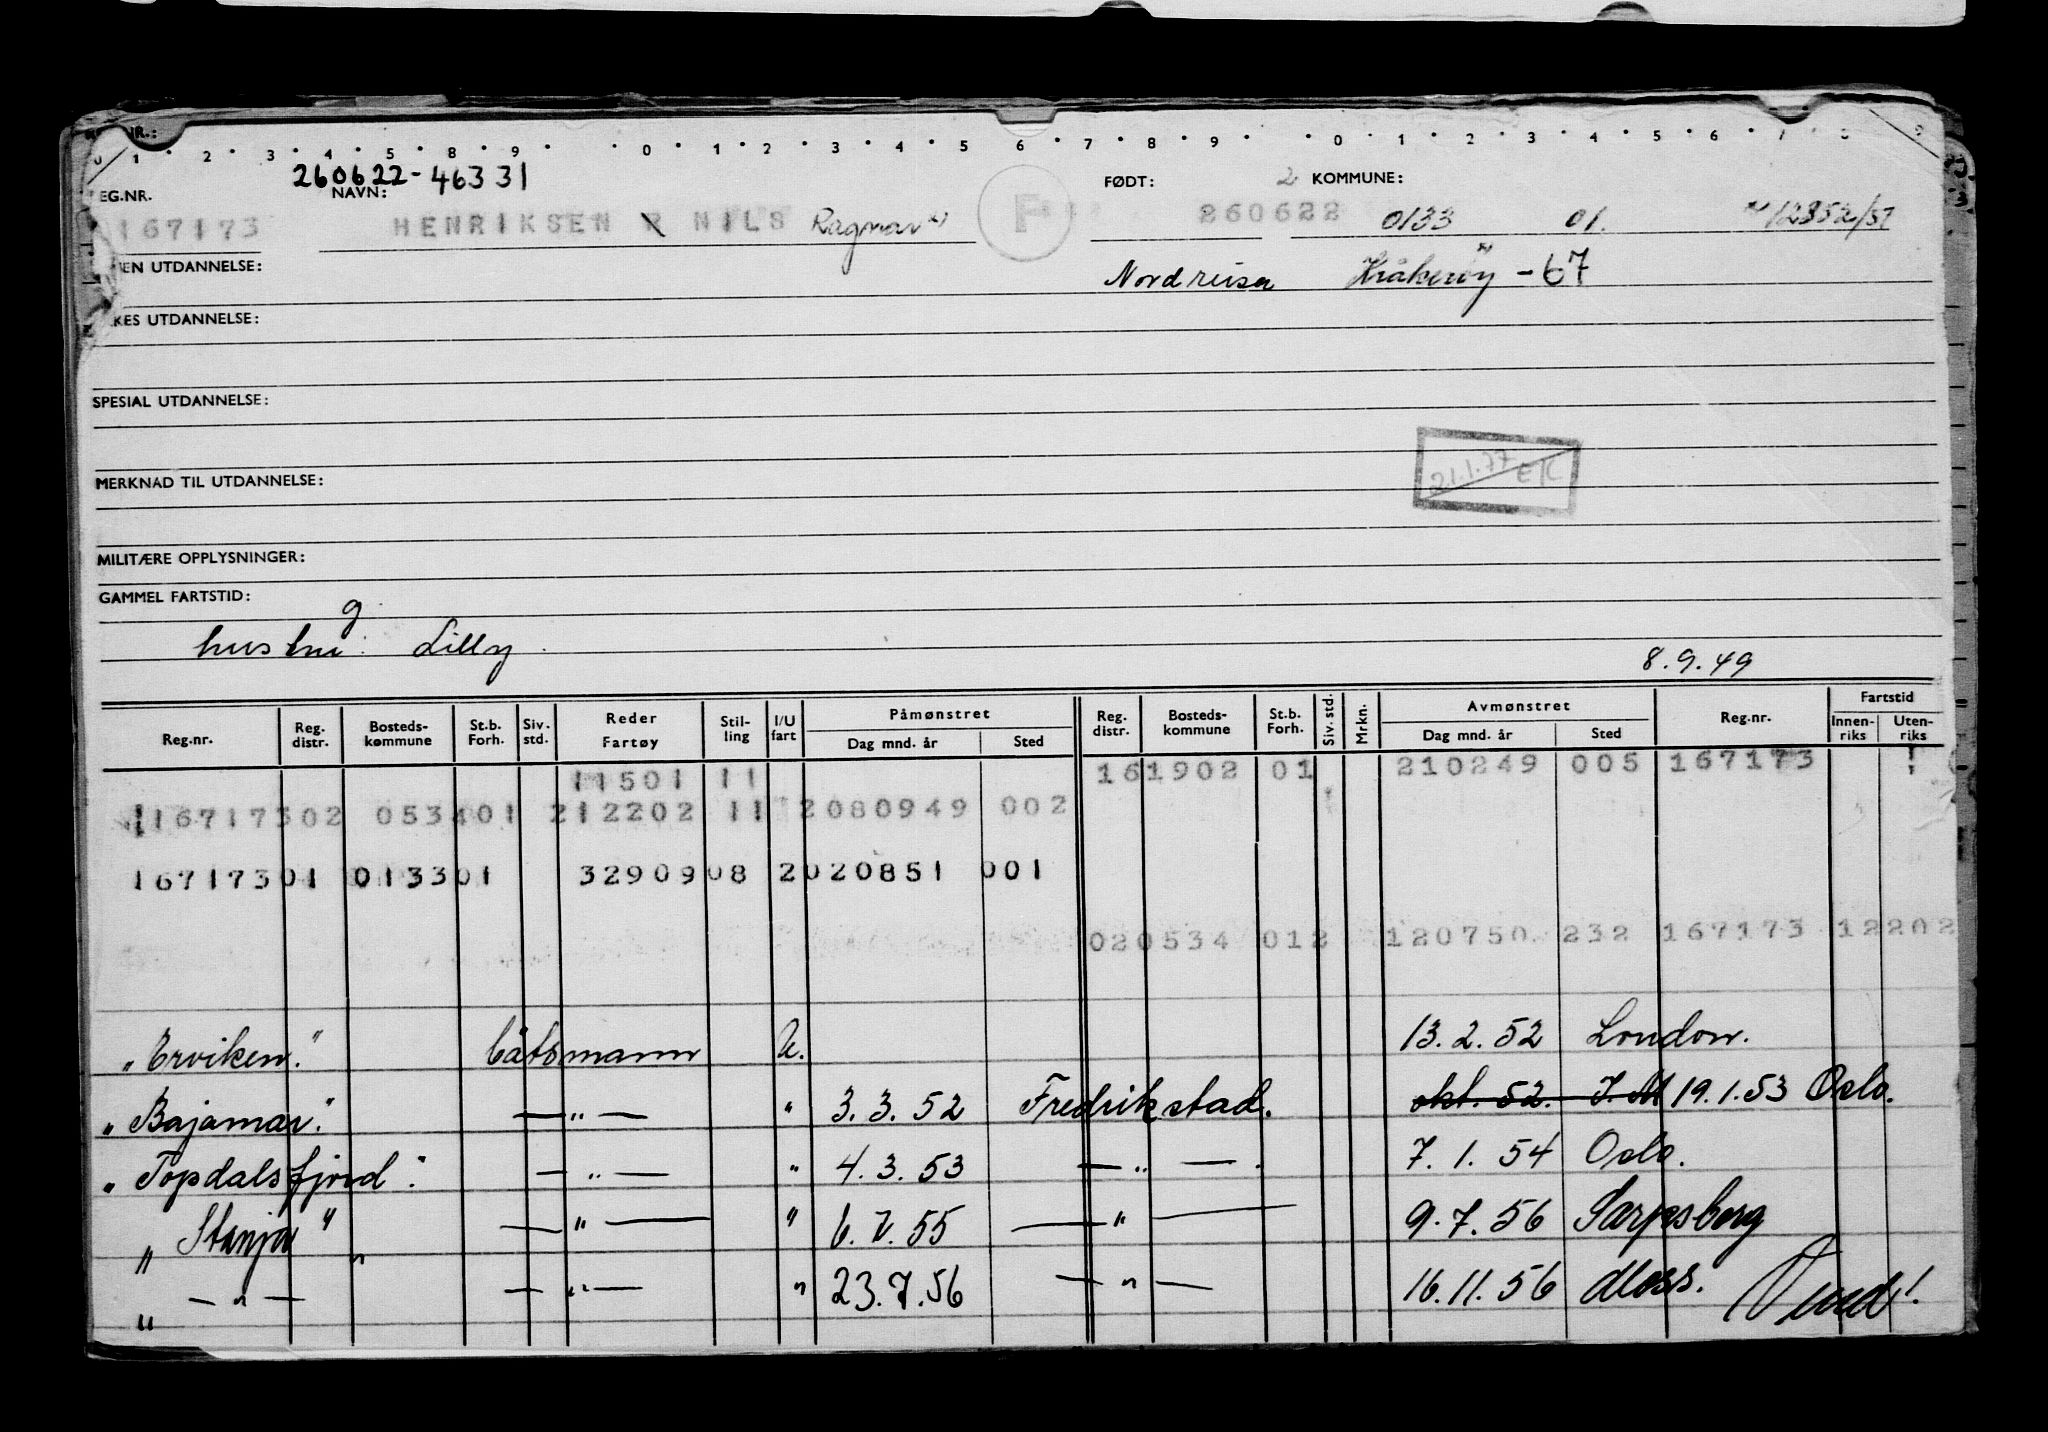 NR.:
0 1 2 3 4 5 8 9 0 1 2 3 4 5 6 7 8 9 0 1 2 3 4 5 6 7 8 9
260622-46331
EG.NR. NAVN: FØDT: 2 KOMMUNE:
167173 HENRIKSEN NILS Ragnar x) F 260622 0133 01. 12852/57
MEN UTDANNELSE: Nordreisa Kråkerøy -67
KES UTDANNELSE:
SPESIAL UTDANNELSE:
21.1.77 E/C
MERKNAD TIL UTDANNELSE:
MILITÆRE OPPLYSNINGER:
GAMMEL FARTSTID:
g
hustru: Lilly.
8.9.49
Reg.nr. Reg. distr. Bosteds-kommune St.b. Forh. Siv. std. Reder Fartøy Stil-ling I/U fart Påmønstret Dag mnd. år Sted Reg. distr. Bosteds-kommune St.b. Forh. Siv. std. Mrkn. Avmønstret Dag mnd. år Sted Reg.nr. Fartstid Innen-riks Uten-riks
11501 11 161902 01 210249 005 167173
16717302 053401 212202 11 2080949 002
16717301 013301 32909 08 2020851 001
020534 012 120750 232 167173 12202
"Erviken." båtsmann U. 13.2.52 London.
"Bajamar." — " — " 3.3.52 Fredrikstad. okt. 52. 19.1.53 Oslo.
"Topdalsfjord". — " — " 4.3.53 — " — . 7.1.54 Oslo.
"Stanja" — " — " 6.7.55 — " — 9.7.56 Sarpsborg
" — " — — " — " 23.7.56 — " — 16.11.56 Moss. Vend!
"